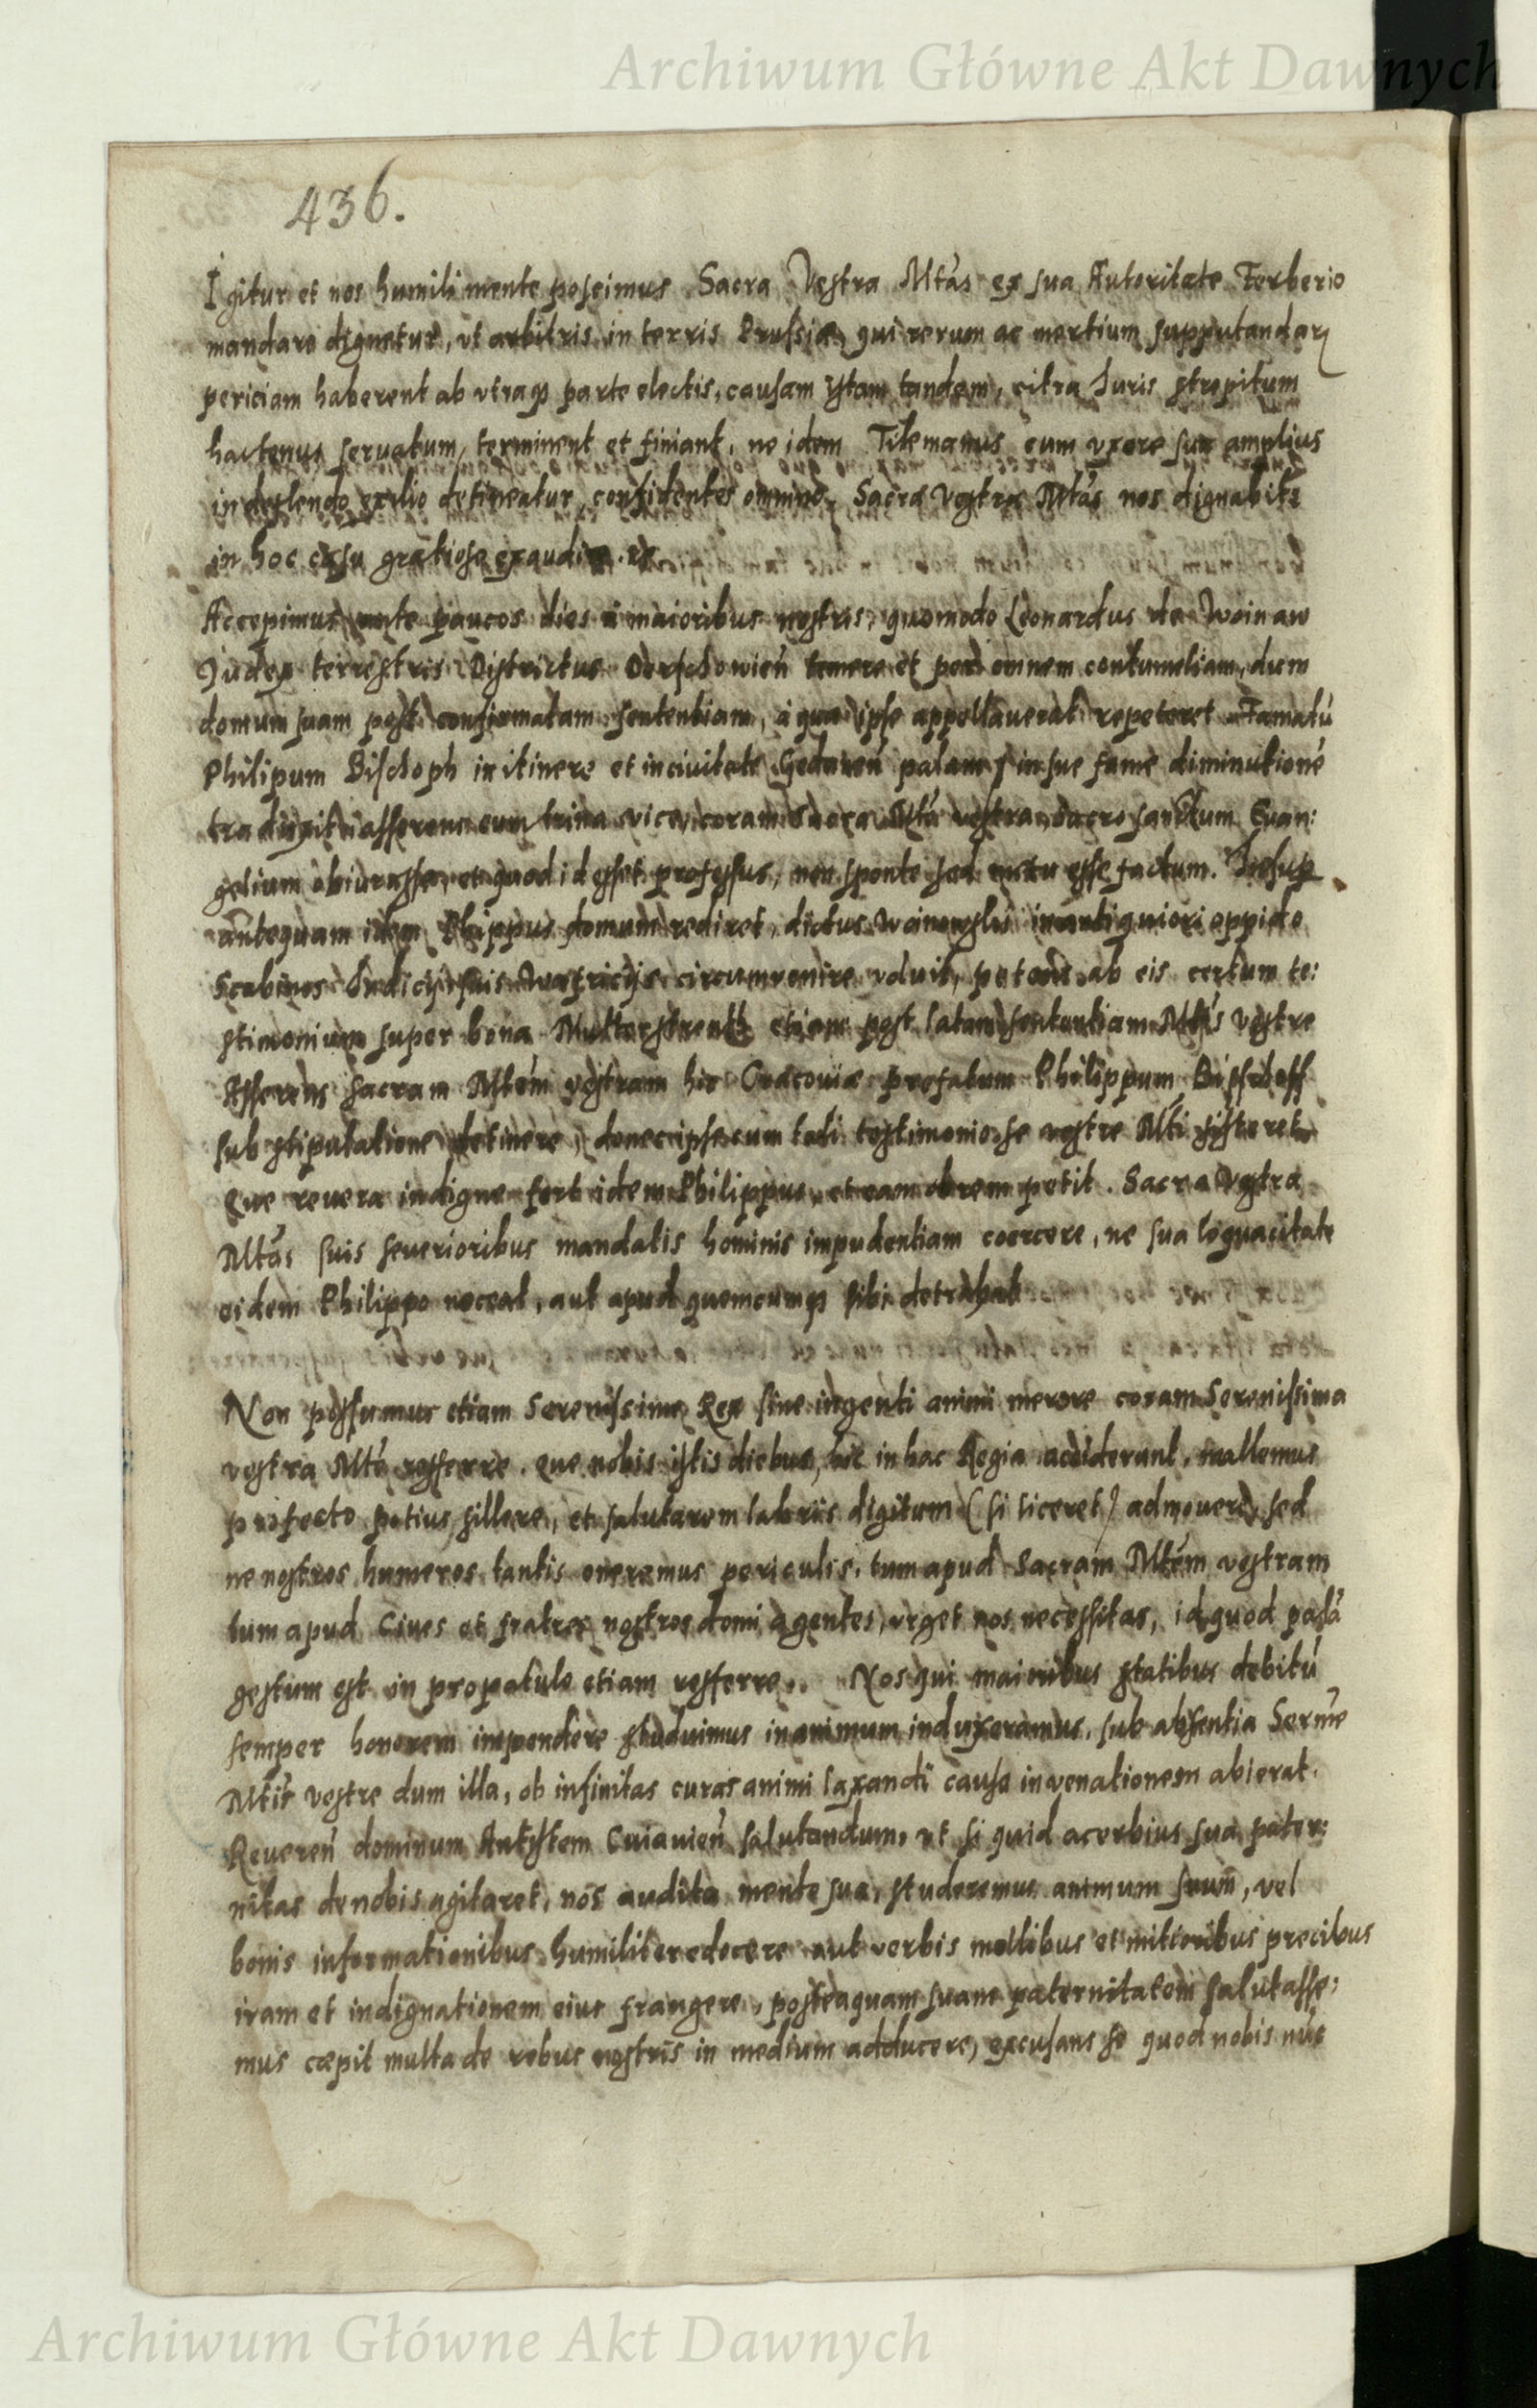 Archiwum Główne Akt Dawnych
436.
Igitur et nos humili mente poscimus Sacra Vestra Mtas ex sua Autoritate Ferberio
mandare dignetur, vt arbitris in terris Prussiæ, qui rerum ac mertium supputandarꝝ
periciam haberent ab vtraqꝫ parte electis, causam istam tandem, citra Iuris strepitum
hactenus seruatum, terminent et finiant, ne idem Tilemanus cum vxore sua amplius
in deflendo exilio detineatur, confidentes omnino, Sacra Vestra Mtas nos dignabitr
in hoc casu gratiose exaudire.
Accepimus ante paucos dies à maioribus nostris, quomodo Leonardus de Woinaw
Iudex terrestris Districtus Derschowien̄ temere et per omnem contumeliam, dum
domum suam post confirmatam sententiam, à qua ipse appellauerat repeteret Famatū
Philipum Bischoph in itinere et in ciuitate Gedanen̄ palam in sue fame diminutionē
traduxit asserens eum trina vice, coram Sacra Mtē vestra, sacro sanctum Euan:
gelium abiurasse, et quod id esset professus, non sponte sed metu esse factum. Insuꝑ
antequam idem Phippus domum rediret, dictus in antiquiori oppido
Scabinos Iudicij suis circumvenire voluit, petens ab eis certum te:
stimonium super bona etiam post latam sententiam Mtis Vestre
Asserens sacram Mtem vestram hic Cracouiæ prefatum Philippum Bisschoff
sub stipulatione detinere, donec ipse cum tali testimonio se vestre Mti sisteret
Que reuera indigne fert idem Philippus, et eam ob rem petit. Sacra Vestra
Mtas suis seuerioribus mandatis hominis impudentiam coercere, ne sua loquacitate
eidem Philippo noceat, aut apud quemcumqꝫ sibi detrahat
Non possumus etiam Serenissime Rex sine ingenti animi merore coram Serenissima
vestra Mte refferre. que nobis istis diebus, hic in hac Regia acciderant, mallemus
profecto potius sillere, et salutarem labriis digitum (si liceret) admouere, sed
ne nostros humeros tantis oneremus periculis, tum apud Sacram Mtem vestram
tum apud Ciues et fratres nostros domi agentes, vrget nos necessitas, id quod palā
gestum est in propatulo etiam refferre. Nos qui maioribus statibus debitū
semper honorem impendere studuimus in animum induxeramus, sub absentia Serme
Mtis Vestre dum illa, ob infinitas curas animi laxandi causa in venationem abierat.
Reueren̄ dominum Antistem Cuiauien̄ salutandum, vt si quid acerbius sua pater:
nitas de nobis agitaret, nos audita mente sua, studeremus animum suum, vel
bonis informationibus humiliter edocere aut verbis mollibus et mitioribus precibus
iram et indignationem eius frangere, posteaquam suam paternitatem salutasse:
mus cœpit multa de rebus nostris in medium adducere, excusans se quod nobis nūc
Archiwum Główne Akt Dawnych